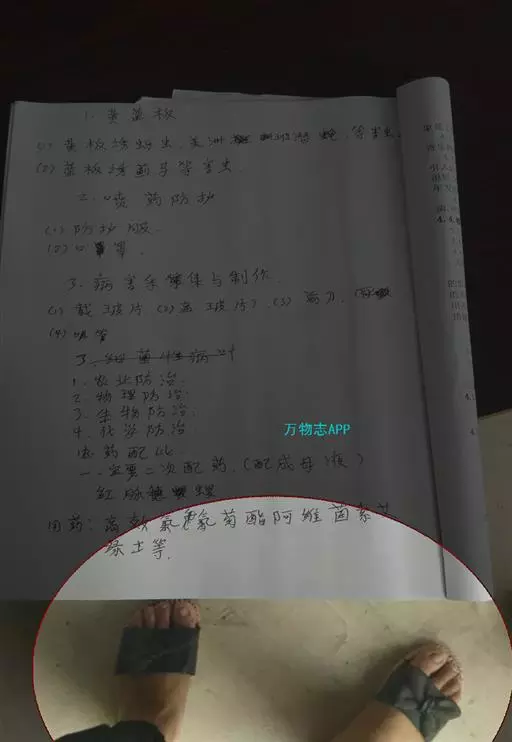 1. 黄蓝板
(1) 黄板诱蚜虫,美洲斑潜蝇,等害虫.
(2) 蓝板诱蓟马等害虫.
2. 喷药防护
(1) 防护服.
(2) 口罩.
3. 病害采集与制作.
(1) 载玻片 (2) 盖玻片), (3) 剪刀,
(4) 吸管
3. 细菌性病叶
1. 农业防治.
2. 物理防治.
3. 生物防治.
4. 化学防治
农药配比.
一. 一定要二次配药,(配成母液)
红脉穗螟
用药: 高效氯氰菊酯阿维菌素
绿土等.
万物志APP